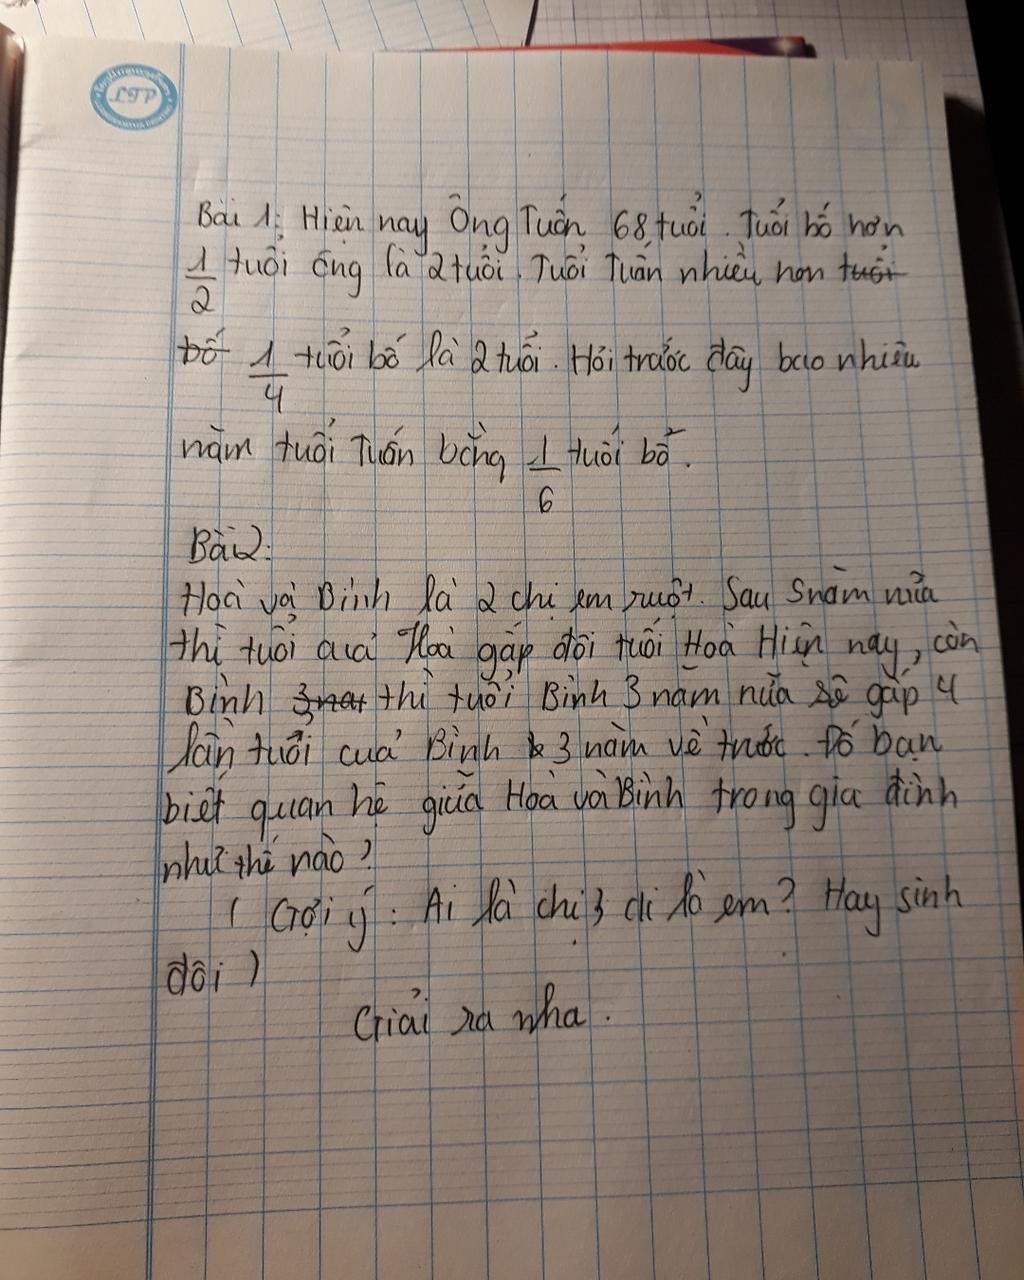 LTP
Bài 1: Hiện nay Ông Tuấn 68 tuổi. Tuổi bố hơn
1/2 tuổi ông là 2 tuổi. Tuổi Tuấn nhiều hơn tuổi
bố 1/4 tuổi bố là 2 tuổi. Hỏi trước đây bao nhiêu
năm tuổi Tuấn bằng 1/6 tuổi bố.
Bài 2:
Hoà và Bình là 2 chị em ruột. Sau 5 năm nữa
thì tuổi của Hoà gấp đôi tuổi Hoà Hiện nay, còn
Bình 3 thì tuổi Bình 3 năm nữa sẽ gấp 4
lần tuổi của Bình 3 năm về trước. Đố bạn
biết quan hệ giữa Hoà và Bình trong gia đình
như thế nào?
( Gợi ý: Ai là chị, ai là em? Hay sinh
đôi )
Giải ra nha.